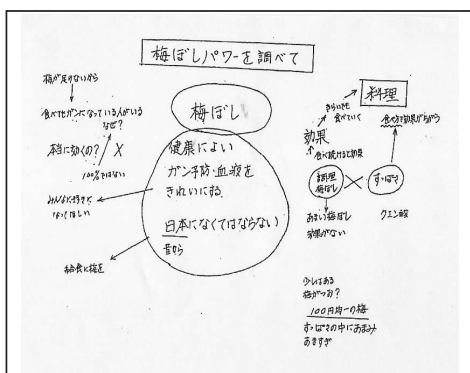 梅ぼしパワーを調べて
梅が足りないから
食べてもガンになっている人がいる
なぜ?
本当に効くの?
×
100%ではない
みんなに好きに
なってほしい
給食に梅を
梅ぼし
健康によい
ガン予防・血液を
きれいにする
日本になくてはならない
昔から
料理
きらいでも
食べていく
食べ方で効果がちがう
効果
食べ続けると効果
調理
梅ぼし
すっぱい
あまい梅ぼし
効果がない
クエン酸
少しはある
梅かつお?
100円均一の梅
すっぱさの中にあまみ
ありすぎ